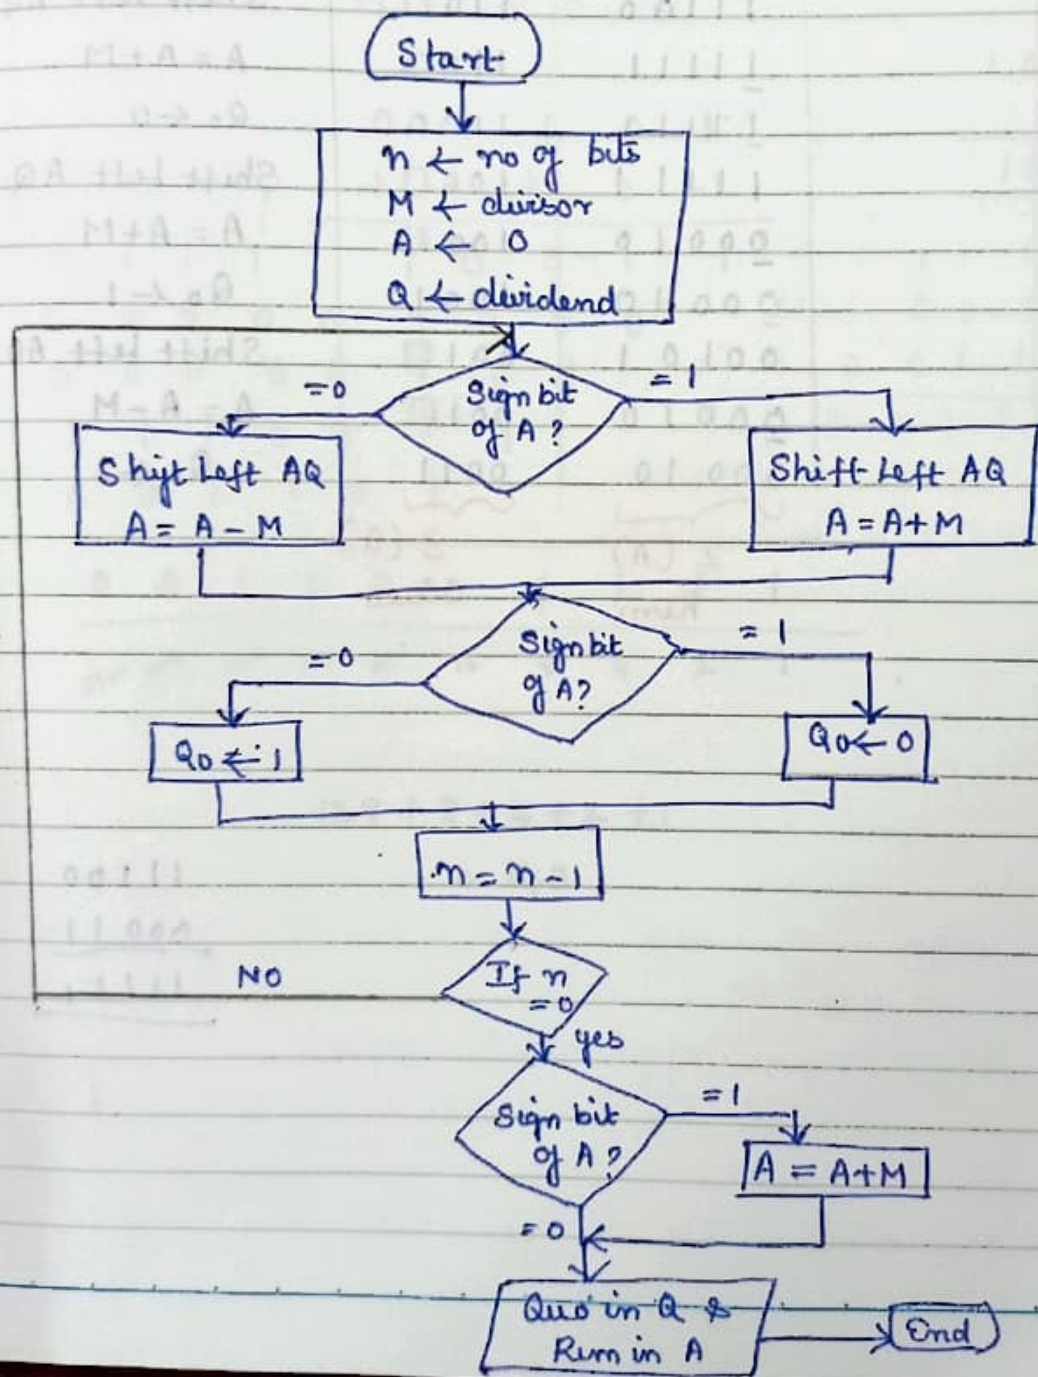 Start
n ← no of bits
M ← divisor
A ← 0
Q ← dividend
Sign bit
of A ?
=0
= 1
Shift Left AQ
A = A - M
Shift Left AQ
A = A+M
Sign bit
of A?
=0
= 1
Q0 ← 1
Q0 ← 0
n = n - 1
If n
= 0
NO
yes
Sign bit
of A ?
=1
A = A+M
= 0
Quo in Q &
Rem in A
End